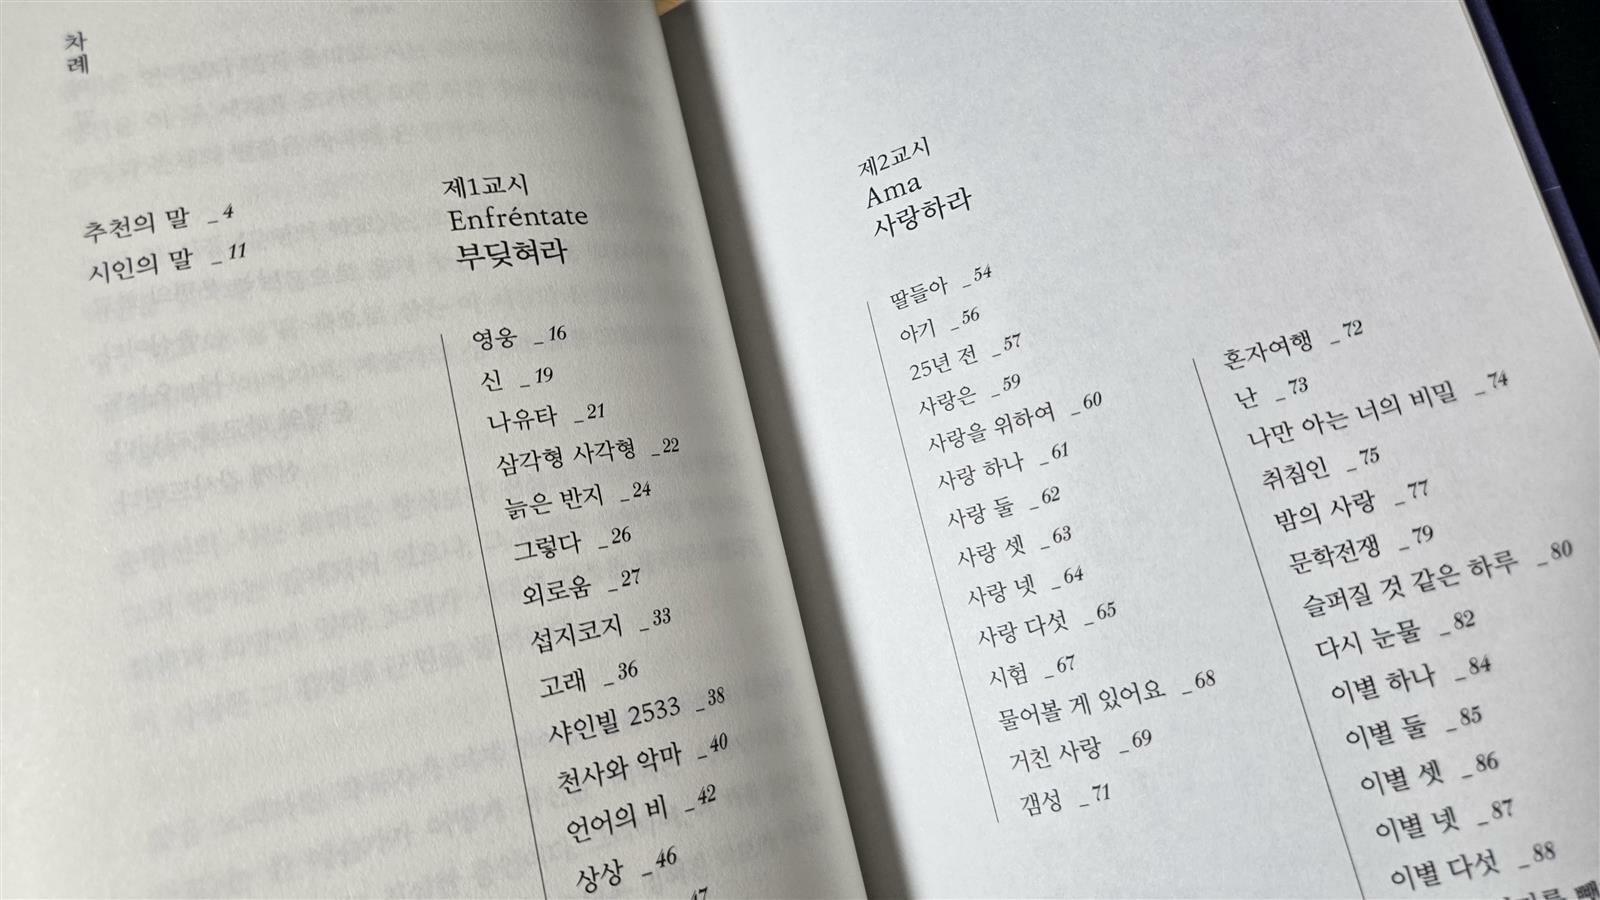 차례
추천의 말 _4
시인의 말 _11
제1교시
Enfréntate
부딪혀라
영웅 _16
신 _19
나유타 _21
삼각형 사각형 _22
늙은 반지 _24
그렇다 _26
외로움 _27
섭지코지 _33
고래 _36
샤인빌 2533 _38
천사와 악마 _40
언어의 비 _42
상상 _46
_47
제2교시
Ama
사랑하라
딸들아 _54
아기 _56
25년 전 _57
사랑은 _59
사랑을 위하여 _60
사랑 하나 _61
사랑 둘 _62
사랑 셋 _63
사랑 넷 _64
사랑 다섯 _65
시험 _67
물어볼 게 있어요 _68
거친 사랑 _69
갬성 _71
혼자여행 _72
난 _73
나만 아는 너의 비밀 _74
취침인 _75
밤의 사랑 _77
문학전쟁 _79
슬퍼질 것 같은 하루 _80
다시 눈물 _82
이별 하나 _84
이별 둘 _85
이별 셋 _86
이별 넷 _87
이별 다섯 _88